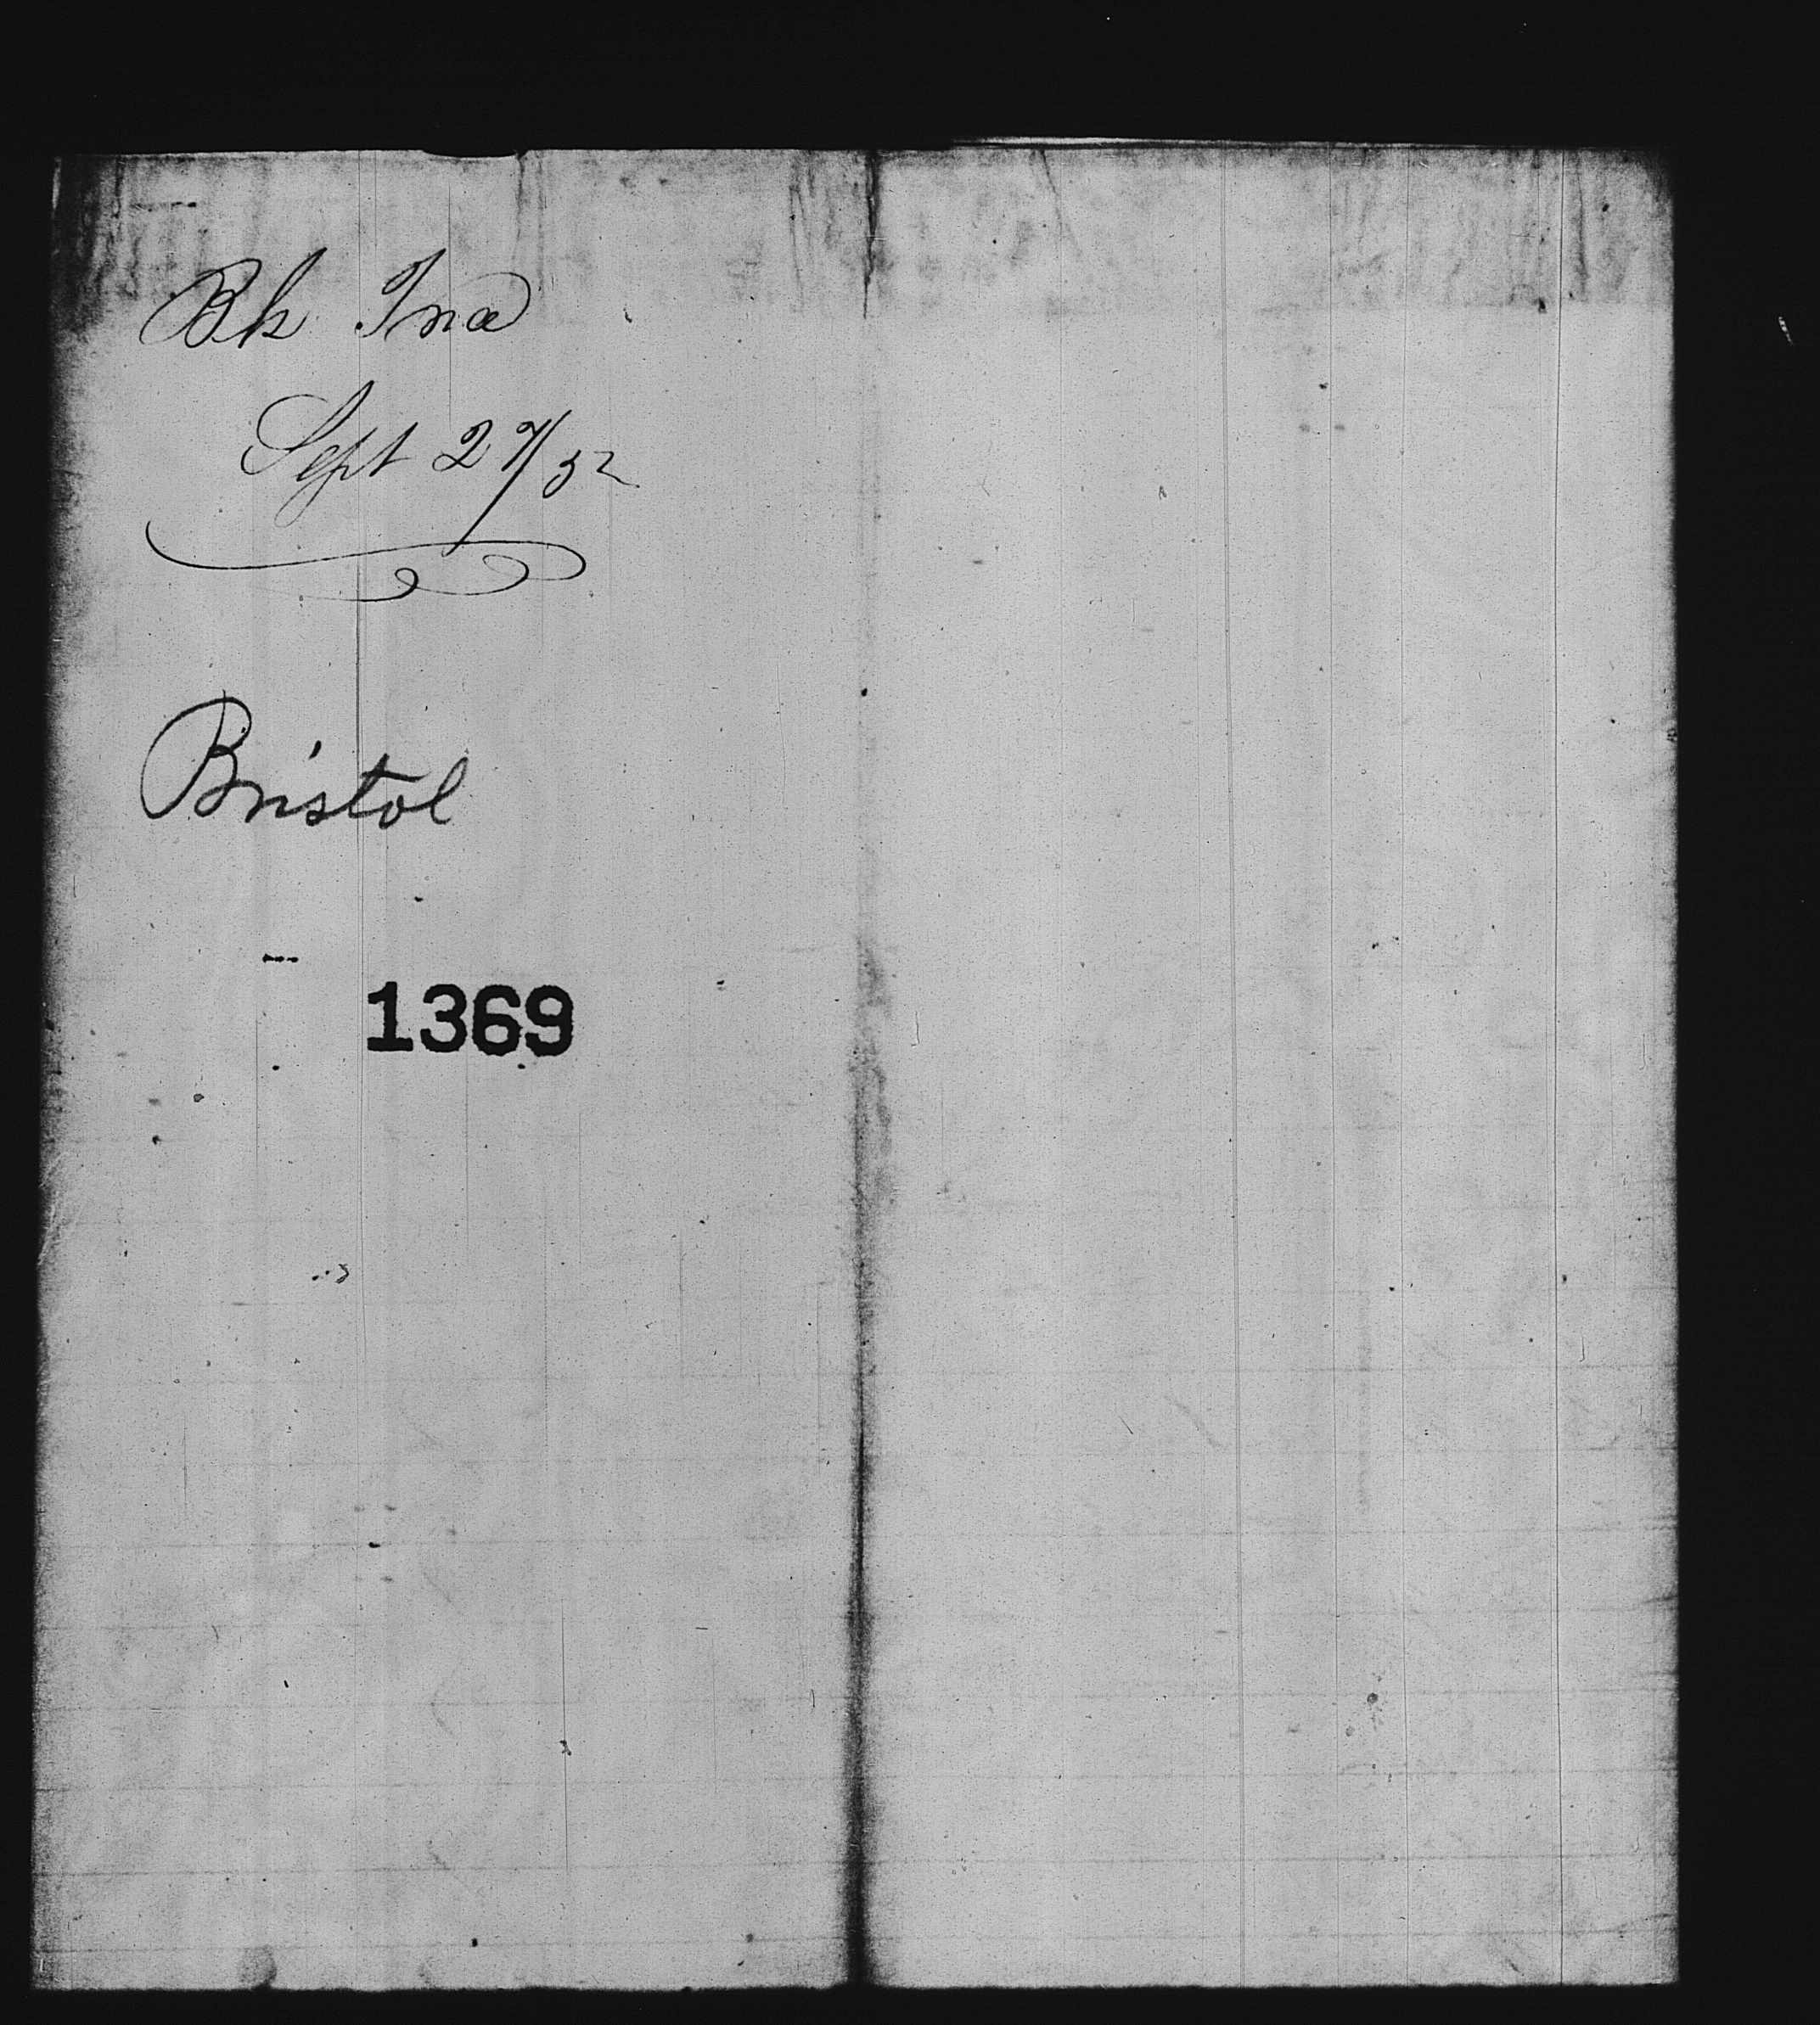 Bk Ina
Sept 27/52
Bristol
1369